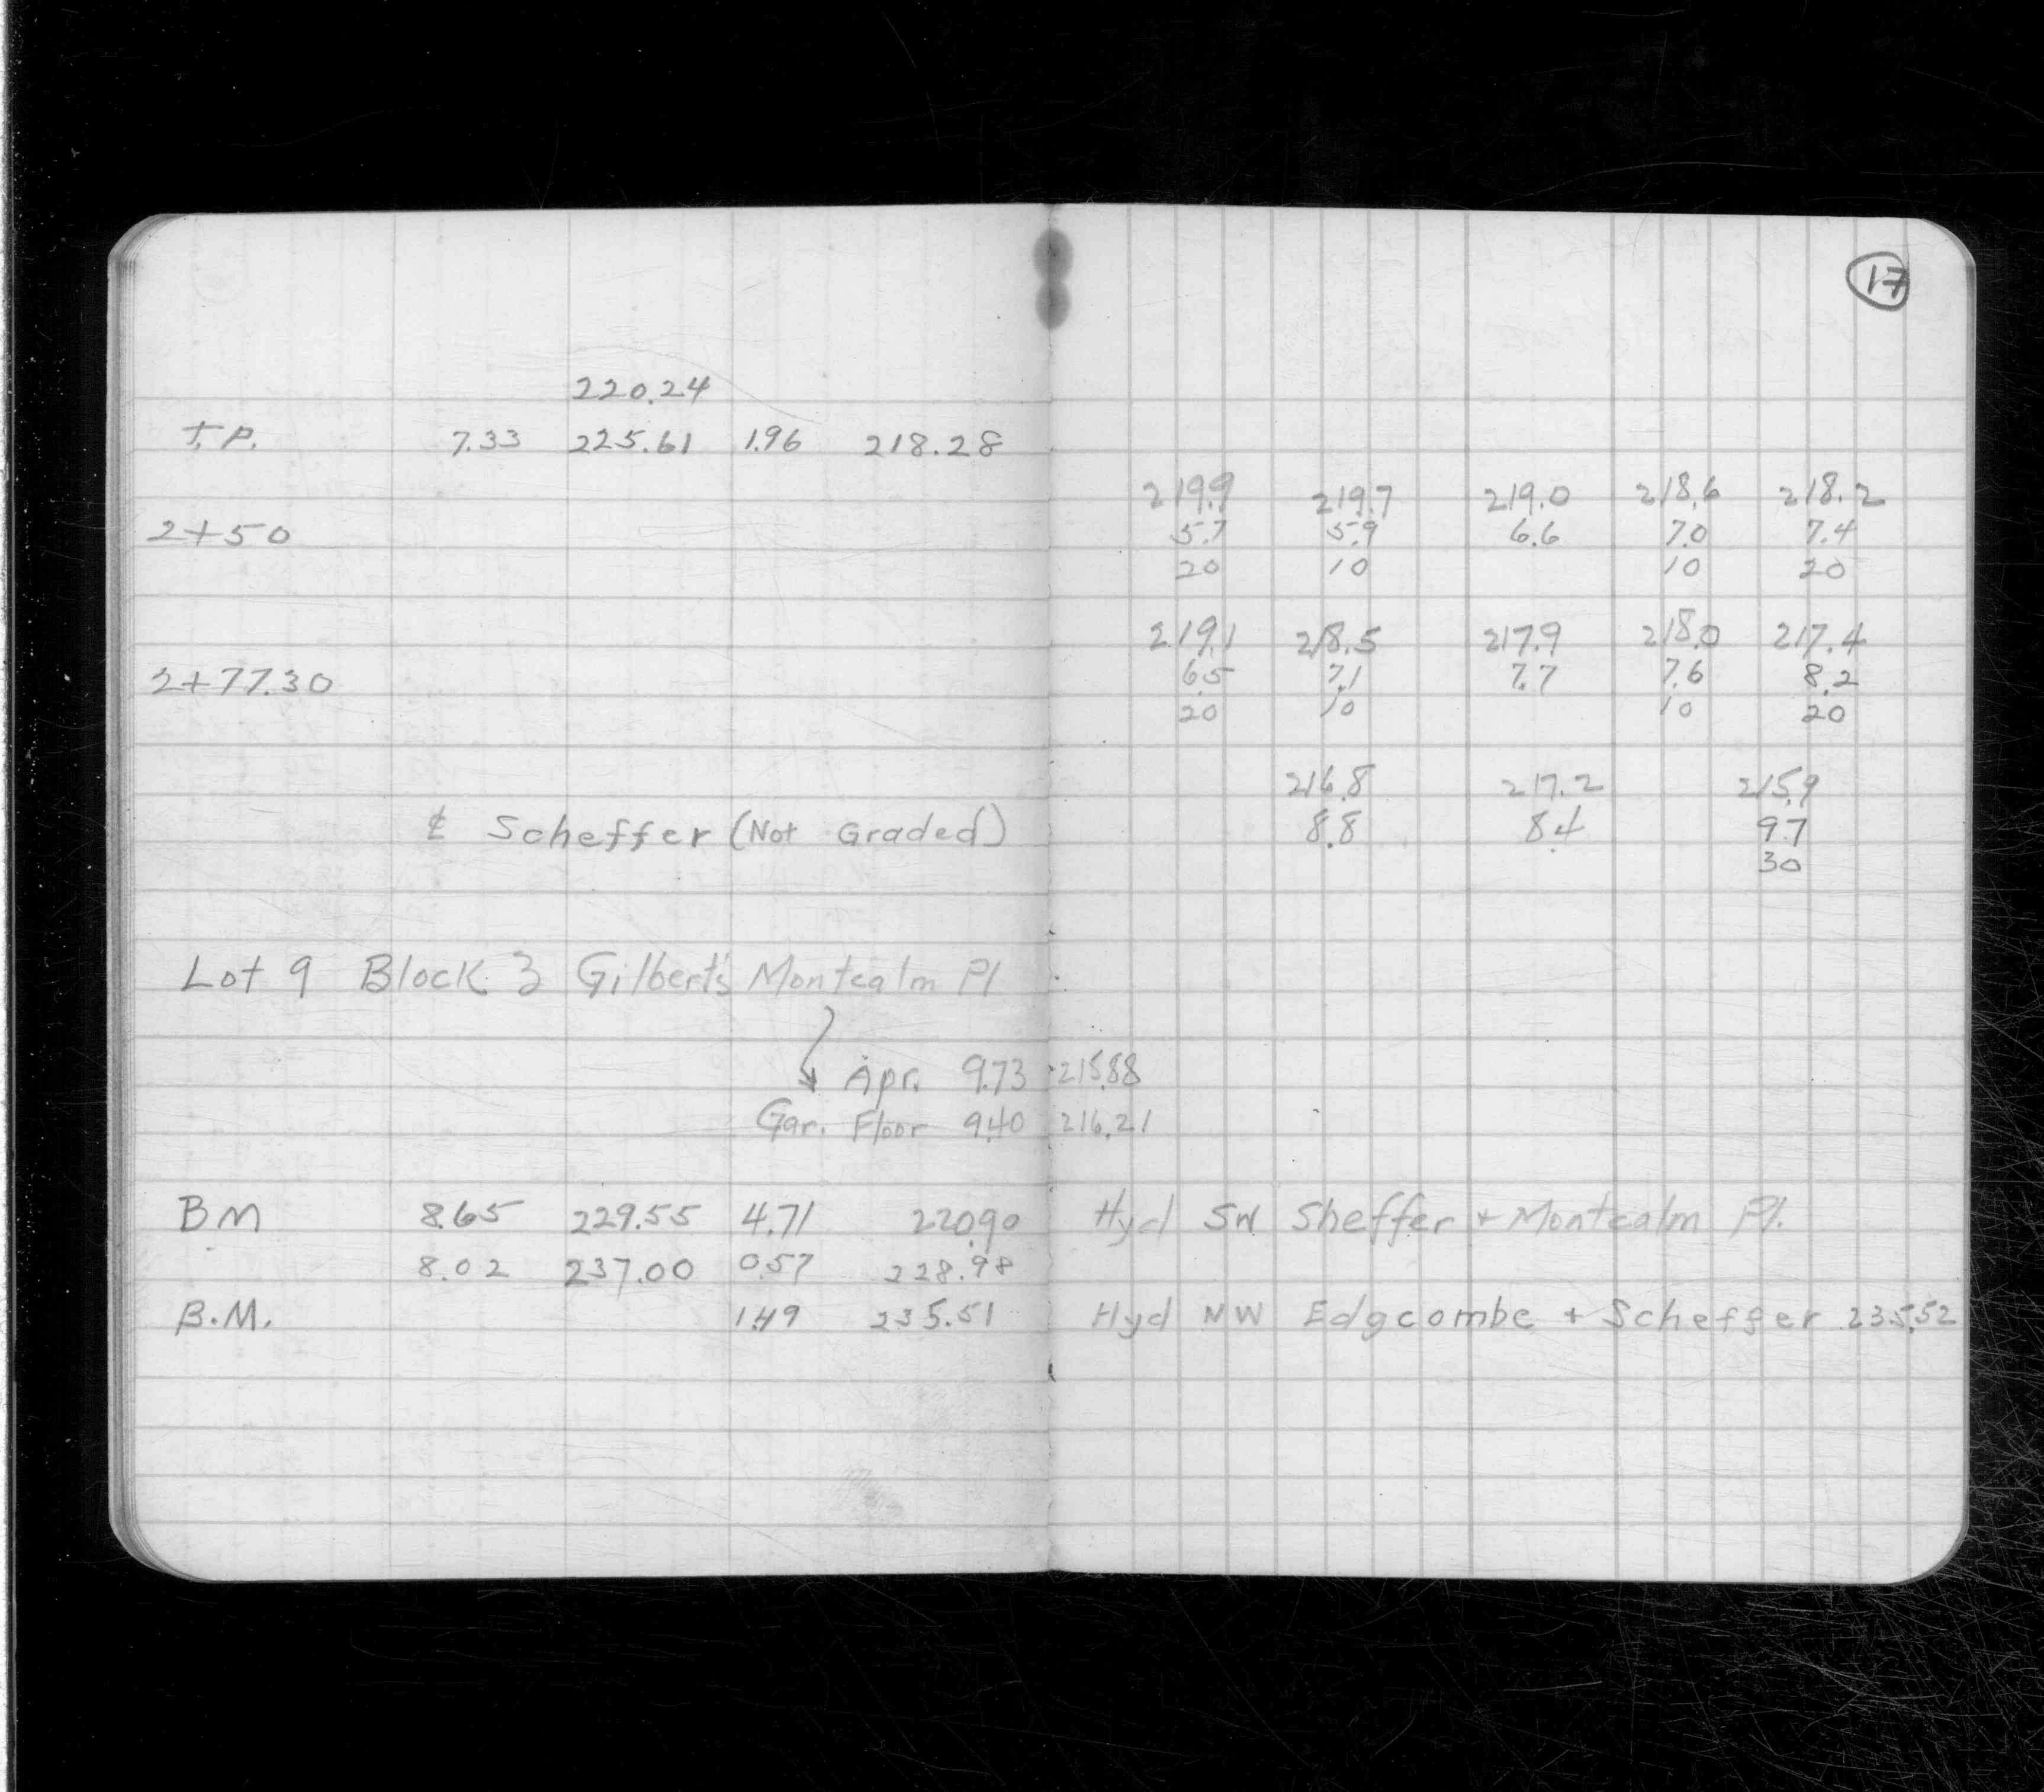 17
220.24
T.P. 7.33 225.61 1.96 218.28
219.9 219.7 219.0 218.6 218.2
2+50 5.7 5.9 6.6 7.0 7.4
20 10 10 20
219.1 218.5 217.9 218.0 217.4
2+77.30 6.5 7.1 7.7 7.6 8.2
20 10 10 20
216.8 217.2 215.9
℄ Scheffer (Not Graded) 8.8 8.4 9.7
30
Lot 9 Block 3 Gilbert's Montcalm Pl
Apr. 9.73 215.88
Gar. Floor 9.40 216.21
BM 8.65 229.55 4.71 220.90 Hyd SW Sheffer + Montcalm Pl.
8.02 237.00 0.57 228.98
B.M. 1.49 235.51 Hyd NW Edgcombe + Scheffer 235.52